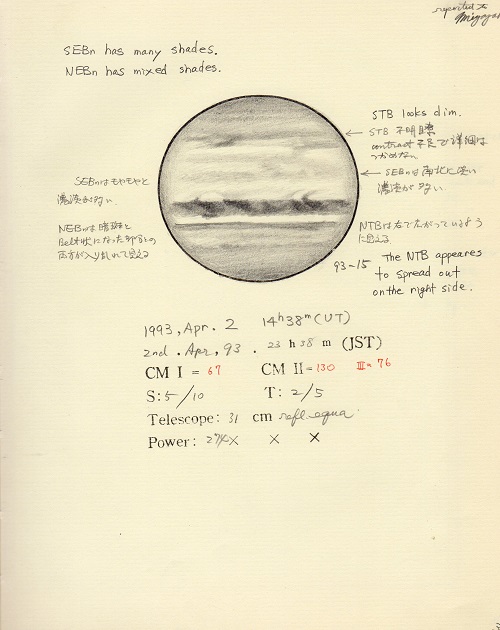 reported to
Miyazaki
SEBn has many shades.
NEBn has mixed shades.
STB looks dim.
STB 不明瞭
contrast 不良で詳細は
つかめない
SEBnは南北に淡い
濃淡が多い
SEBnはモヤモヤと
濃淡が多い.
NEBnは暗斑と
Belt状になった部分の
両方が入り乱れて見える
NTBは右で広がっているよう
に見える
93-15 The NTB appeares
to spread out
on the right side.
1993, Apr. 2 14h38m (UT)
2nd. Apr, 93. 23 h 38 m (JST)
CM I = 67 CM II = 130 III = 76
S: 5/10 T: 2/5
Telescope: 31 cm refl. equa.
Power: X X X